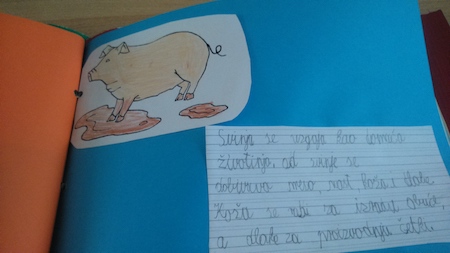 Svinja se uzgaja kao domaća
životinja, od svinje se
dobivaju meso, mast, koža i dlake.
Koža se rabi za izradu obuće,
a dlake za proizvodnju četki.